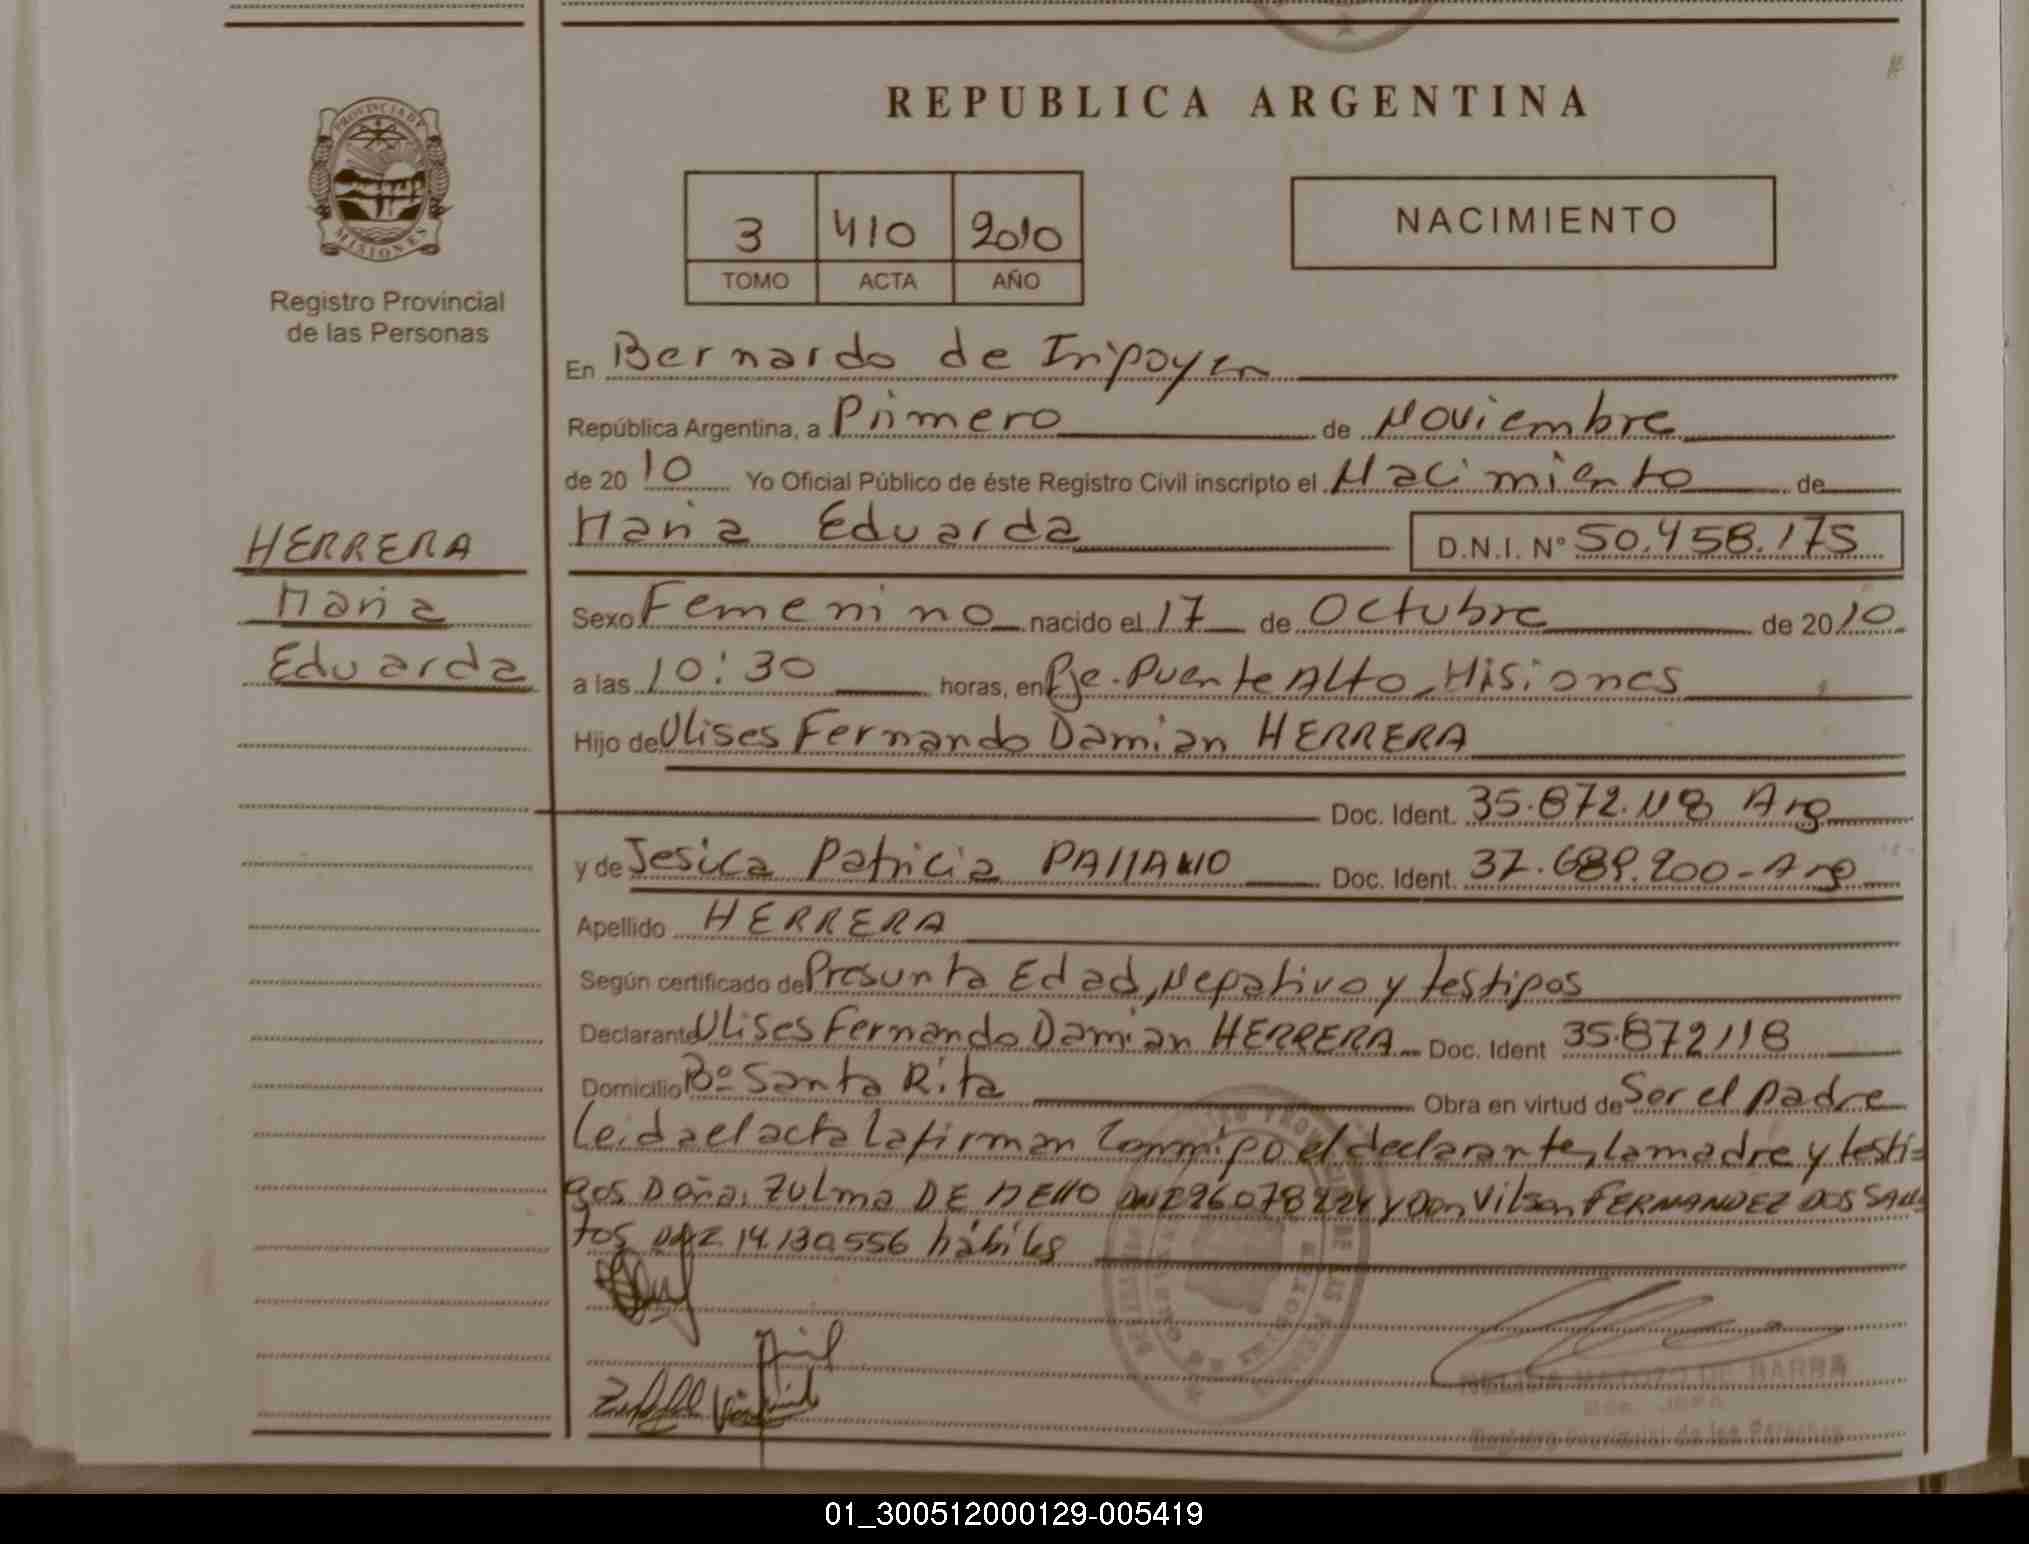 REPUBLICA ARGENTINA
PROVINCIA DE
MISIONES
Registro Provincial
de las Personas
3 410 2010
TOMO ACTA AÑO
NACIMIENTO
En Bernardo de Irigoyen
República Argentina, a Primero de Noviembre
de 2010 Yo Oficial Público de éste Registro Civil inscripto el Nacimiento de
Maria Eduarda D.N.I. Nº 50.458.175
HERRERA
Maria
Eduarda
Sexo Femenino nacido el 17 de Octubre de 2010
a las 10:30 horas, en Pje. Puente Alto, Misiones
Hijo de Ulises Fernando Damian HERRERA
Doc. Ident. 35.872.118 Arg
y de Jesica Patricia Doc. Ident. 37.689.200 - Arg
Apellido HERRERA
Según certificado de Presunta Edad, Negativo y testigos
Declarante Ulises Fernando Damian HERRERA Doc. Ident 35.872118
Domicilio Bº Santa Rita Obra en virtud de Ser el padre
Leida el acta la firman conmigo el declarante, la madre y testi=
gos Doña: Zulma DE MELLO DNI y Don Vilson FERNANDEZ DOS SAN=
TOS DNI 14.130.556 hábiles
DE BARRA
01_300512000129-005419